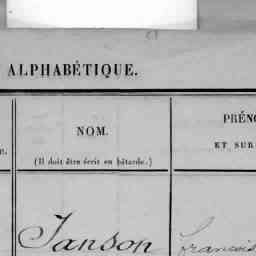 ALPHABÉTIQUE.
NOM.
(Il doit être écrit en bâtarde.)
PRÉNO
ET SUR
Janson François